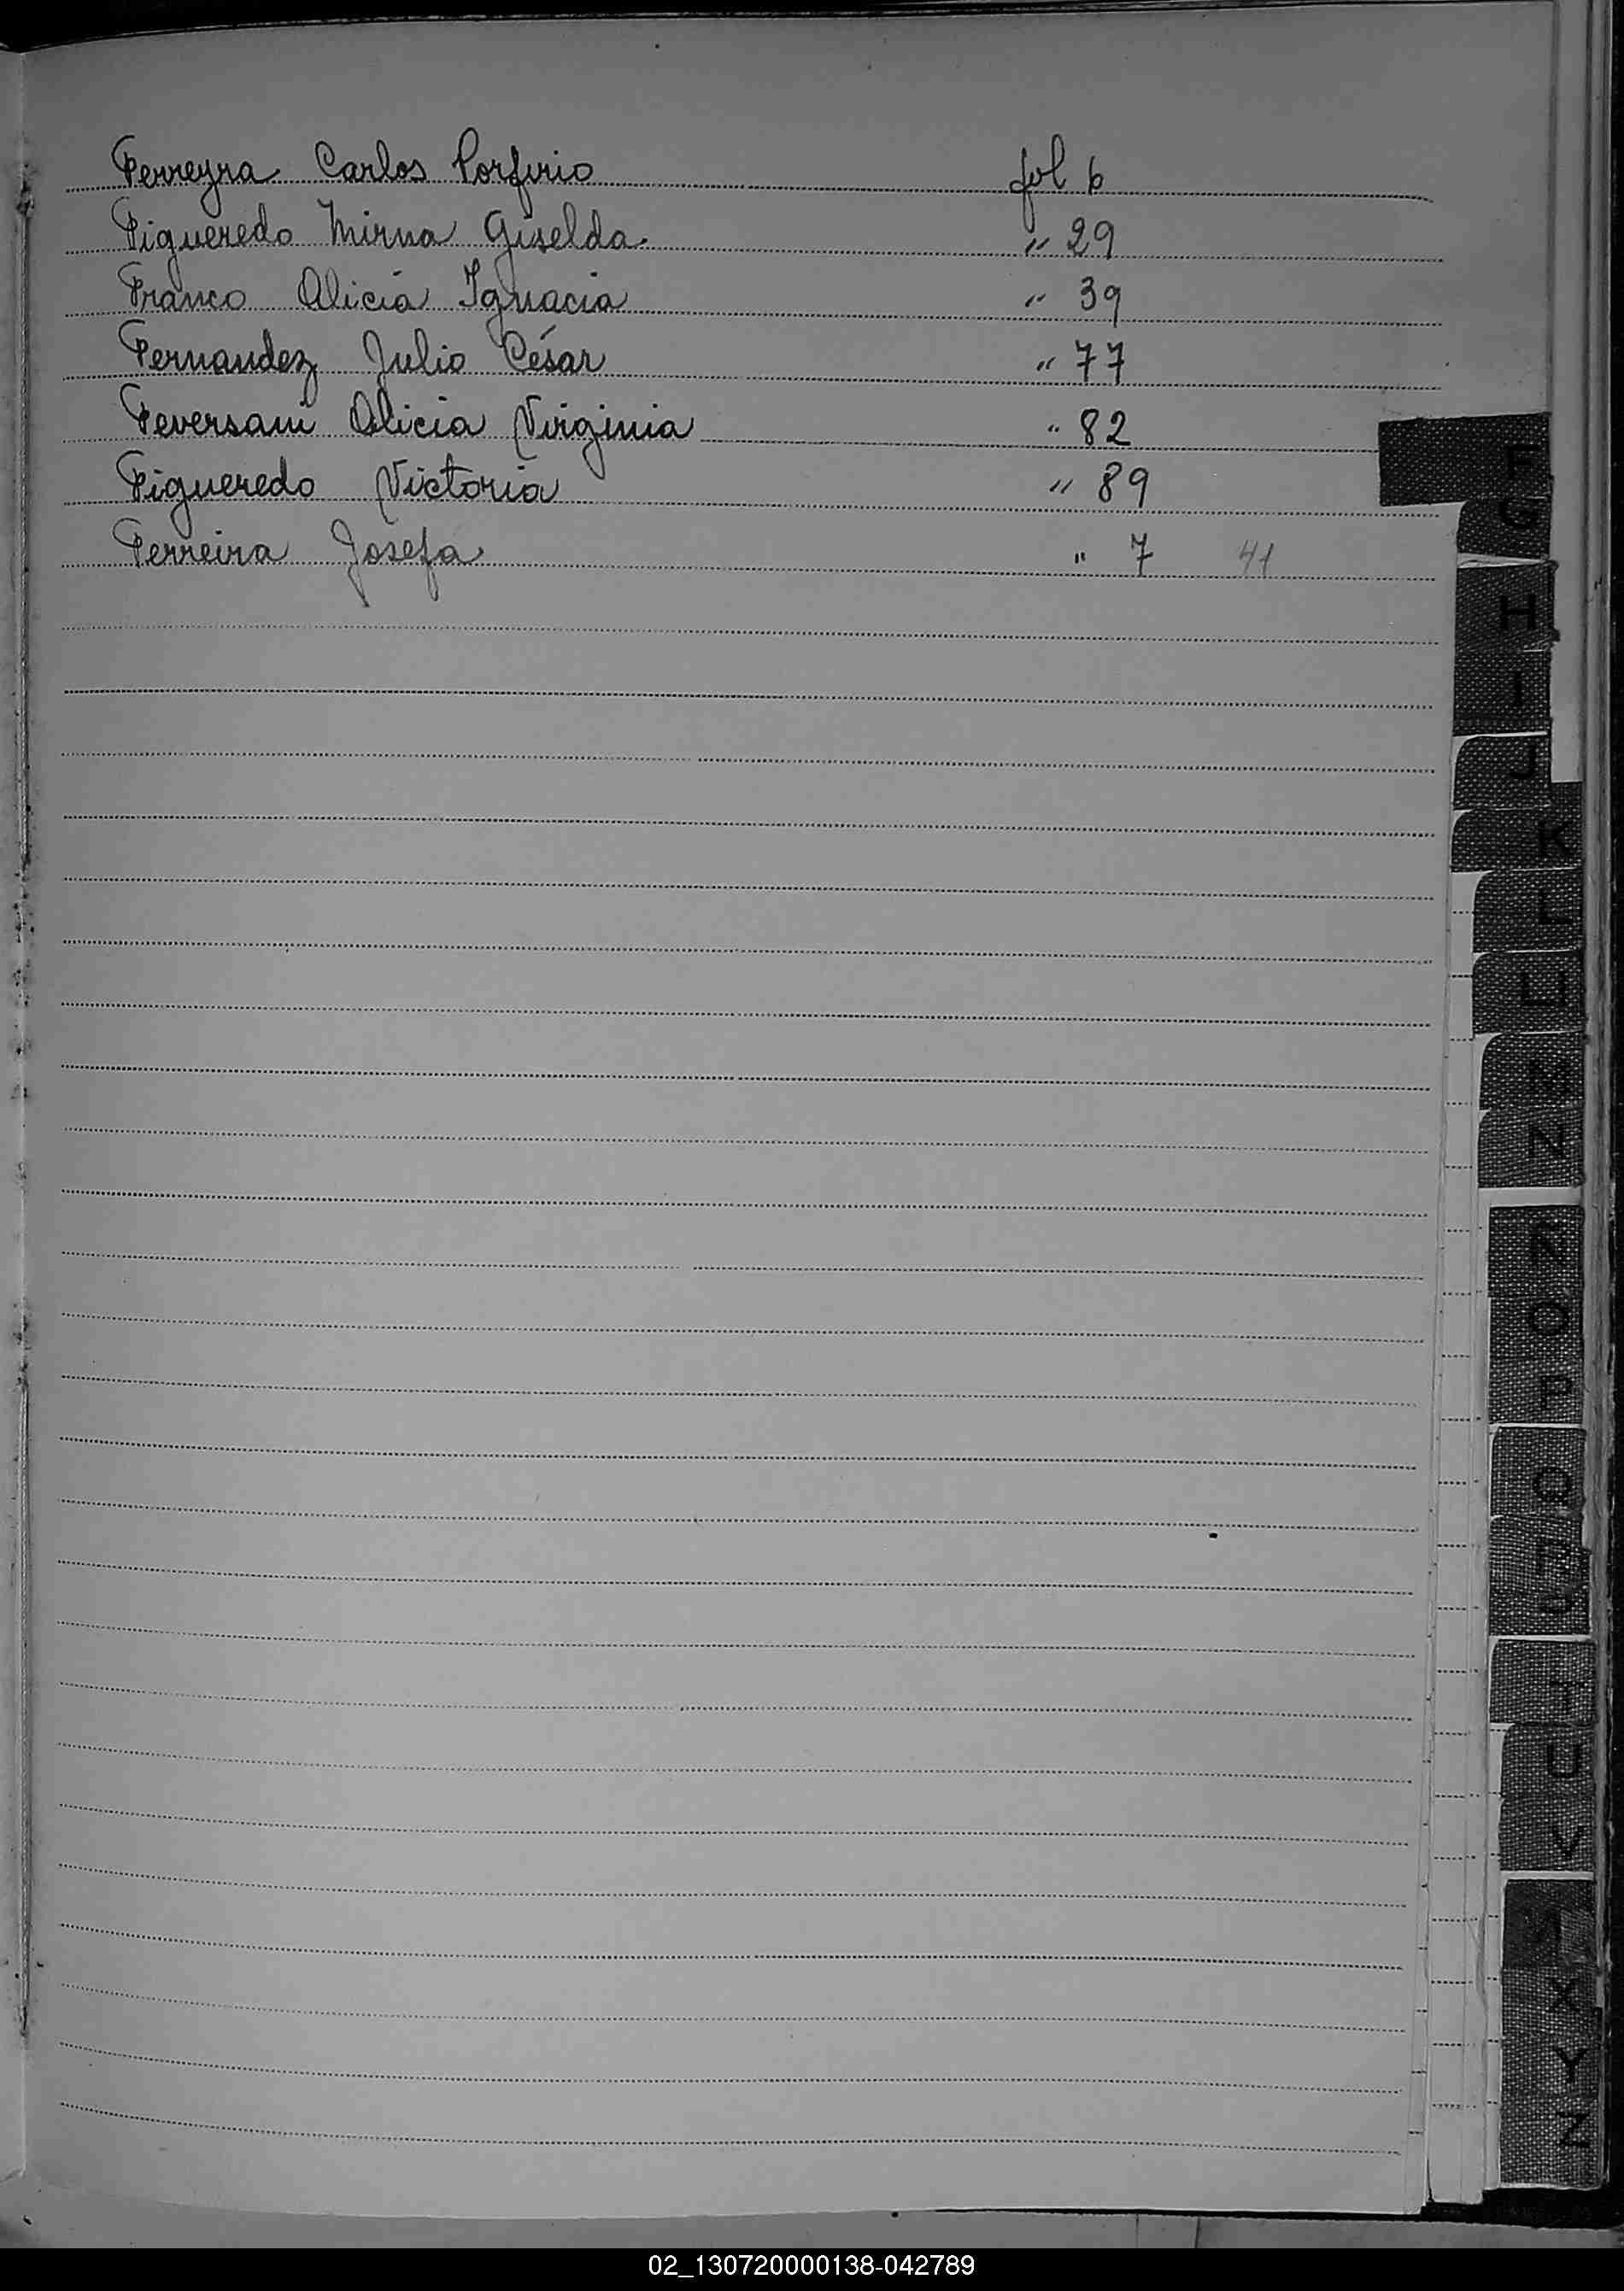 Ferreyra Carlos Porfirio fol 6
Figueredo Mirna Giselda. " 29
Franco Alicia Ignacia " 39
Fernandez Julio César " 77
Feversani Alicia Virginia " 82
Figueredo Victoria " 89
Ferreira Josefa " 7 41
F
G
H
I
J
K
L
LL
M
N
Ñ
O
P
Q
R
S
T
U
V
X
Y
Z
02_130720000138-042789